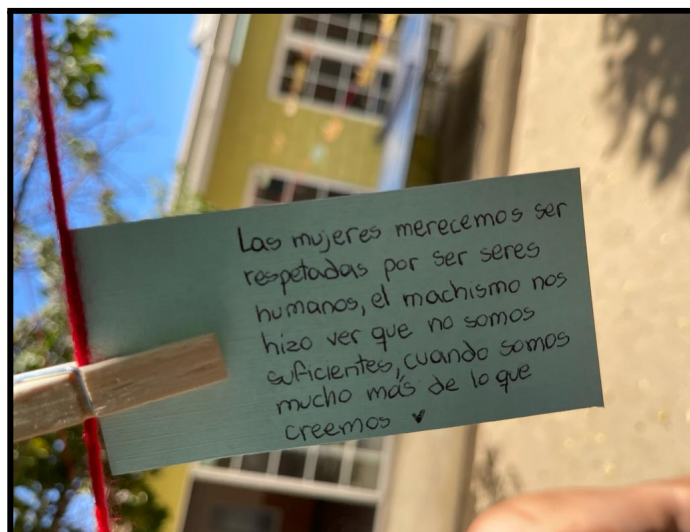 Las mujeres merecemos ser
respetadas por ser seres
humanos, el machismo nos
hizo ver que no somos
suficientes, cuando somos
mucho más de lo que
creemos ♥